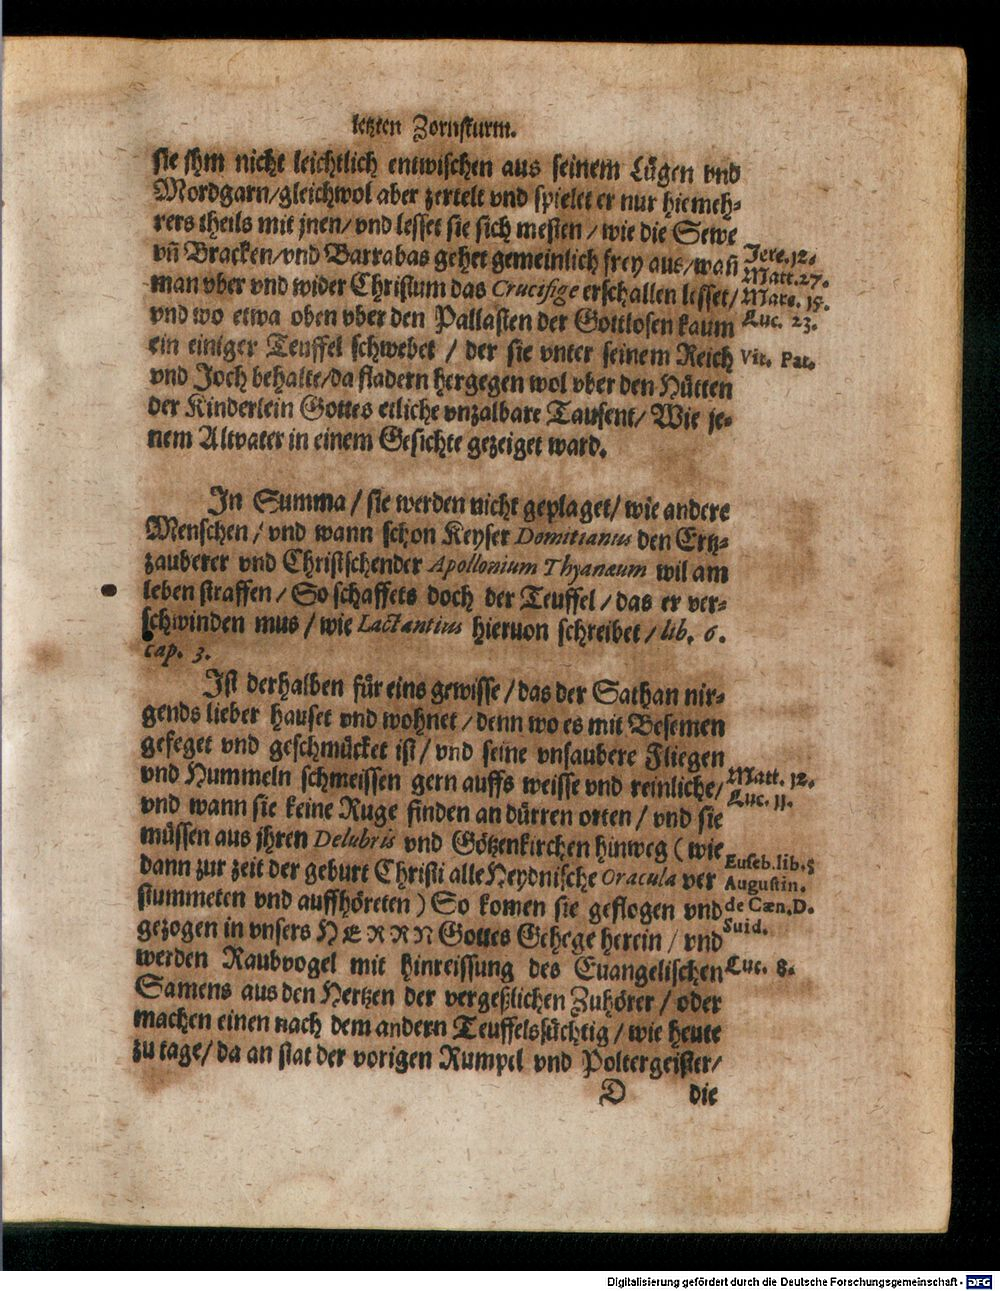 letzten Zornsturm.
sie jhm nicht leichtlich entwischen aus seinem Lügen vnd
Mordgarn/gleichwol aber zertelt vnd spielet er nur hie meh-
rers theils mit jnen/ vnd lesset sie sich mesten / wie die Sewe
vñ Bracken/vnd Barrabas gehet gemeinlich frey aus/wañ
Jere. 12.
Matt. 27.
man vber vnd wider Christum das Crucifige erschallen lesset/
Marc. 15.
vnd wo etwa oben vber den Pallasten der Gottlosen kaum
Luc. 23.
ein einiger Teuffel schwebet / der sie vnter seinem Reich
Vit. Pat.
vnd Joch behalte/da fladern hergegen wol vber den Hütten
der Kinderlein Gottes etliche vnzalbare Tausent/ Wie je-
nem Altvater in einem Gesichte gezeiget ward.
In Summa / sie werden nicht geplaget/ wie andere
Menschen / vnd wann schon Keyser Domitianus den Ertz-
zauberer vnd Christschender Apollonium Thyanæum wil am
leben straffen / So schaffets doch der Teuffel / das er ver-
schwinden mus / wie Lactantius hieruon schreibet / lib. 6.
cap. 3.
Ist derhalben für eins gewisse / das der Sathan nir-
gends lieber hauset vnd wohnet / denn wo es mit Besemen
gefeget vnd geschmücket ist / vnd seine vnsaubere Fliegen
vnd Hummeln schmeissen gern auffs weisse vnd reinliche/
Matt. 12.
Luc. 11.
vnd wann sie keine Ruge finden an dürren orten / vnd sie
müssen aus jhren Delubris vnd Götzenkirchen hinweg ( wie
Euseb. lib. 5
dann zur zeit der geburt Christi alle Heydnische Oracula ver
Augustin.
stummeten vnd auffhöreten ) So komen sie geflogen vnd
de Cæn. D.
gezogen in vnsers HERRN Gottes Gehege herein / vnd
Suid.
werden Raubvogel mit hinreissung des Euangelischen
Luc. 8.
Samens aus den Hertzen der vergeßlichen Zuhörer / oder
machen einen nach dem andern Teuffelssüchtig / wie heute
zu tage/ da an stat der vorigen Rumpel vnd Poltergeister/
D die
Digitalisierung gefördert durch die Deutsche Forschungsgemeinschaft - DFG